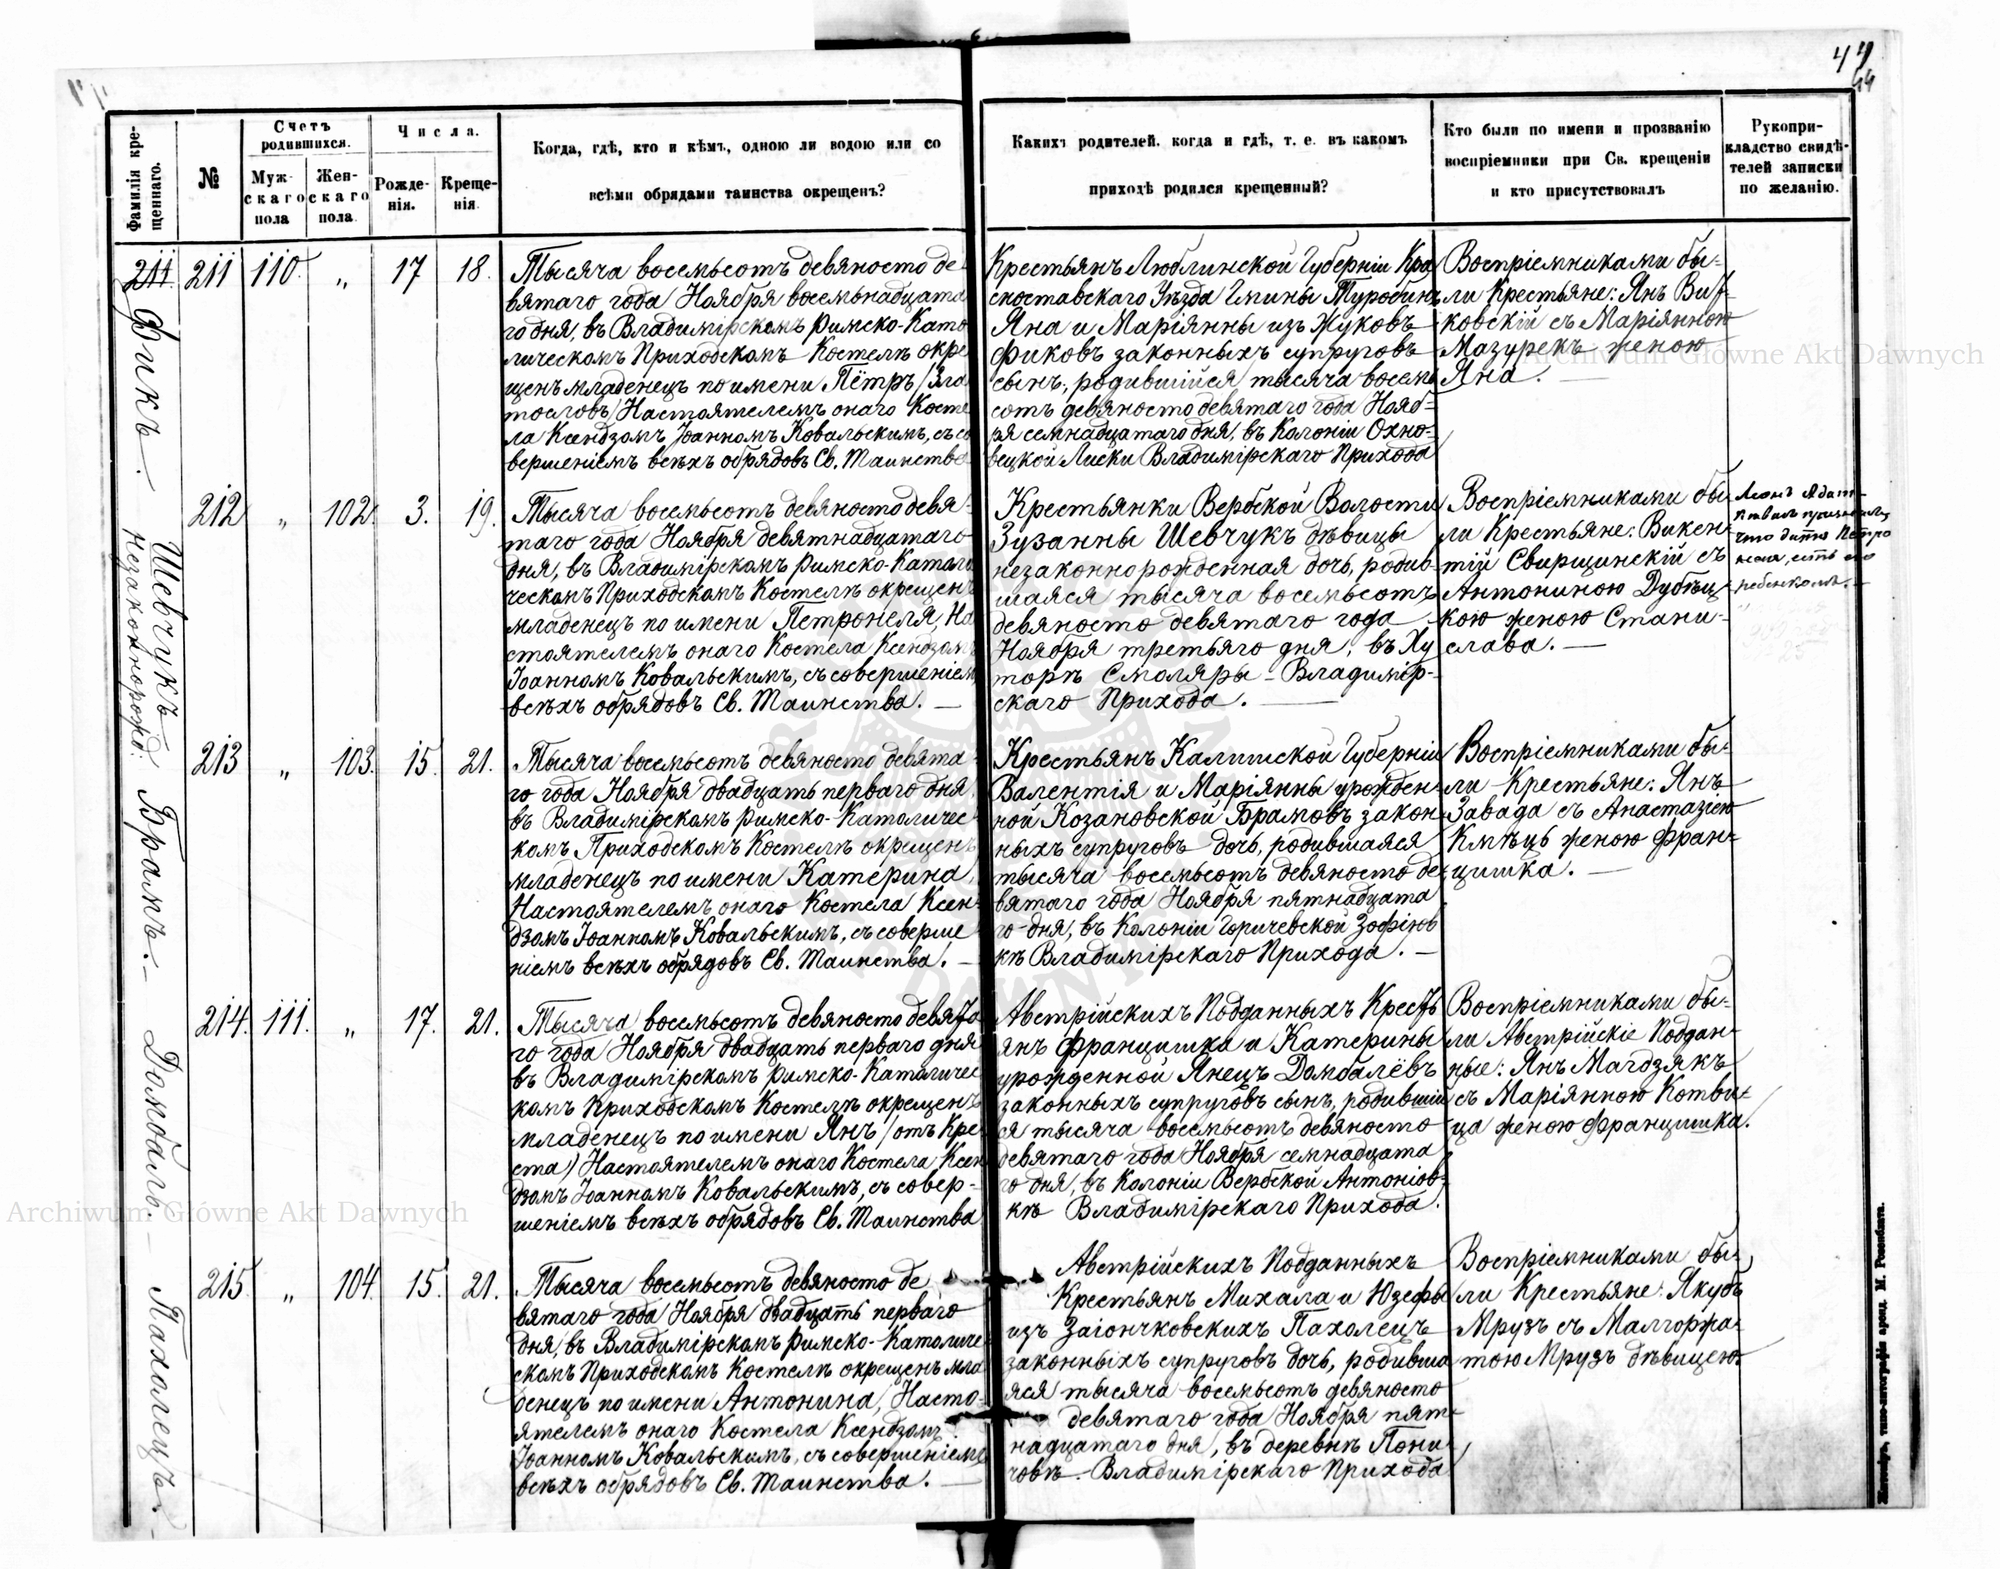 44
44
Фамилія кре-
щеннаго.
№
Счетъ
родившихся.
Муж-
скаго
пола
Жен-
скаго
пола.
Числа.
Рожде-
нія.
Креще-
нія.
Когда, гдѣ, кто и кѣмъ, одною ли водою или со
всѣми обрядами таинства окрещенъ?
Какихъ родителей, когда и гдѣ, т. е. въ какомъ
приходѣ родился крещенный?
Кто были по имени и прозванію
воспріемники при Св. крещеніи
и кто присутствовалъ
Рукопри-
кладство свидѣ-
телей записки
по желанію.
211
Фикъ.
211 110. „ 17 18.
Тысяча восемьсотъ девяносто де-
вятаго года Ноября восемьнадцата
го дня, въ Владимірскомъ Римско-Като
лическомъ Приходскомъ Костелѣ окре
щенъ младенецъ по имени Пётръ
Настоятелемъ онаго Косте
ла Ксендзомъ Іоанномъ Ковальскимъ, съ со
вершеніемъ всѣхъ обрядовъ Св. Таинства
Крестьянъ Люблинской Губерніи Кра
сноставскаго Уѣзда Гмины Туробинъ
Яна и Маріянны изъ Жуковъ
Фиковъ законныхъ супруговъ
сынъ, родившійся тысяча восемь
сотъ девяносто девятаго года Нояб-
ря семнадцатаго дня, въ Колоніи Охно-
вецкой Лиски Владимірскаго Прихода
Воспріемниками бы-
ли Крестьяне: Янъ Вит-
ковскій съ Маріянною
Мазурекъ женою
Яна.
Шевчукъ
незаконнорожд.
212 „ 102 3. 19.
Тысяча восемьсотъ девяносто девя-
таго года Ноября девятнадцатаго
дня, въ Владимірскомъ Римско-Католи
ческомъ Приходскомъ Костелѣ окрещенъ
младенецъ по имени Петронеля, На
стоятелемъ онаго Костела Ксендзомъ
Іоанномъ Ковальскимъ, съ совершеніем
всѣхъ обрядовъ Св. Таинства.
Крестьянки Вербской Волости
Зузанны Шевчукъ дѣвицы
незаконнорожденная дочь, родив-
шаяся тысяча восемьсотъ
девяносто девятаго года
Ноября третьяго дня, въ Ху
торѣ Смоляры - Владимір-
скаго Прихода.
Воспріемниками бы-
ли Крестьяне: Викен-
тій Свирщинскій съ
Антониною Дубѣц-
кою женою Стани-
слава.
что дитя Петро
неля, есть его
ребенкомъ.
Брамъ.
213 „ 103. 15. 21.
Тысяча восемьсотъ девяносто девята-
го года Ноября двадцать перваго дня
въ Владимірскомъ Римско-Католичес
комъ Приходскомъ Костелѣ окрещенъ
младенецъ по имени Катерина,
Настоятелемъ онаго Костела Ксен-
дзомъ Іоанномъ Ковальскимъ, съ соверше
ніемъ всѣхъ обрядовъ Св. Таинства.
Крестьянъ Калишской Губерніи
Валентія и Маріянны урожден-
ной Козановской Брамовъ закон
ныхъ супруговъ дочь, родившаяся
тысяча восемьсотъ девяносто де-
вятаго года Ноября пятнадцата
го дня, въ Колоніи Горичевской Зофіюв
кѣ Владимірскаго Прихода.
Воспріемниками бы-
ли Крестьяне: Янъ
Завада съ Анастазіею
Кмѣць женою Фран-
цишка.
Домбаль.
214. 111. „ 17. 21.
Тысяча восемьсотъ девяносто девята
го года Ноября двадцать перваго дня
въ Владимірскомъ Римско-Католичес
комъ Приходскомъ Костелѣ окрещенъ
младенецъ по имени Янъ (отъ Кре
ста) Настоятелемъ онаго Костела Ксен
дзомъ Іоанномъ Ковальскимъ, съ совер-
шеніемъ всѣхъ обрядовъ Св. Таинства
Австрійскихъ Подданныхъ Кресть
янъ Францишка и Катерины
урожденной Янецъ Домбалёвъ
законныхъ супруговъ сынъ, родившій
ся тысяча восемьсотъ девяносто
девятаго года Ноября семнадцата
го дня, въ Колоніи Вербской Антоніов-
кѣ Владимірскаго Прихода.
Воспріемниками бы-
ли Австрійскіе Поддан-
ные: Янъ Магдзякъ
съ Маріянною Котви-
ца женою Францишка.
Пахолецъ.
215. „ 104. 15. 21.
Тысяча восемьсотъ девяносто де
вятаго года Ноября двадцать перваго
дня, въ Владимірскомъ Римско-Католиче
скомъ Приходскомъ Костелѣ окрещенъ мла
денецъ по имени Антонина, Насто-
ятелемъ онаго Костела Ксендзомъ
Іоанномъ Ковальскимъ, съ совершеніемъ
всѣхъ обрядовъ Св. Таинства.
Австрійскихъ Подданныхъ
Крестьянъ Михала и Юзефы
изъ Заіончковскихъ Пахолецъ
законныхъ супруговъ дочь, родивша
яся тысяча восемьсотъ девяносто
девятаго года Ноября пят-
надцатаго дня, въ деревнѣ Пони-
човѣ - Владимірскаго Прихода
Воспріемниками бы-
ли Крестьяне: Якубъ
Мрузъ съ Малгоржа-
тою Мрузъ дѣвицею.
Житоміръ, типо-литографія аренд. М. Розенблата.
Archiwum Główne Akt Dawnych
Archiwum Główne Akt Dawnych